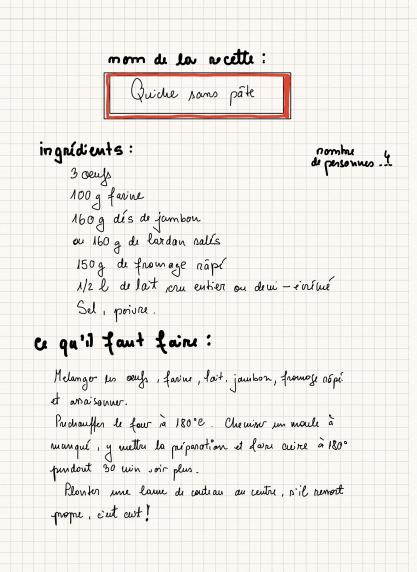 nom de la recette :
Quiche sans pâte
ingrédients :
nombre
de personnes . 4
3 oeufs
100 g farine
160 g dés de jambon
ou 160 g de lardon salés
150 g de fromage râpé
1/2 l de lait cru entier ou demi-écrémé
Sel, poivre.
ce qu'il faut faire :
Mélanger les oeufs, farine, lait, jambon, fromage râpé
et assaisonner.
Préchauffer le four à 180°C. Chemiser un moule à
manqué, y mettre la préparation et faire cuire à 180°
pendant 30 min voir plus.
Planter une lame de couteau au centre, s'il ressort
propre, c'est cuit !